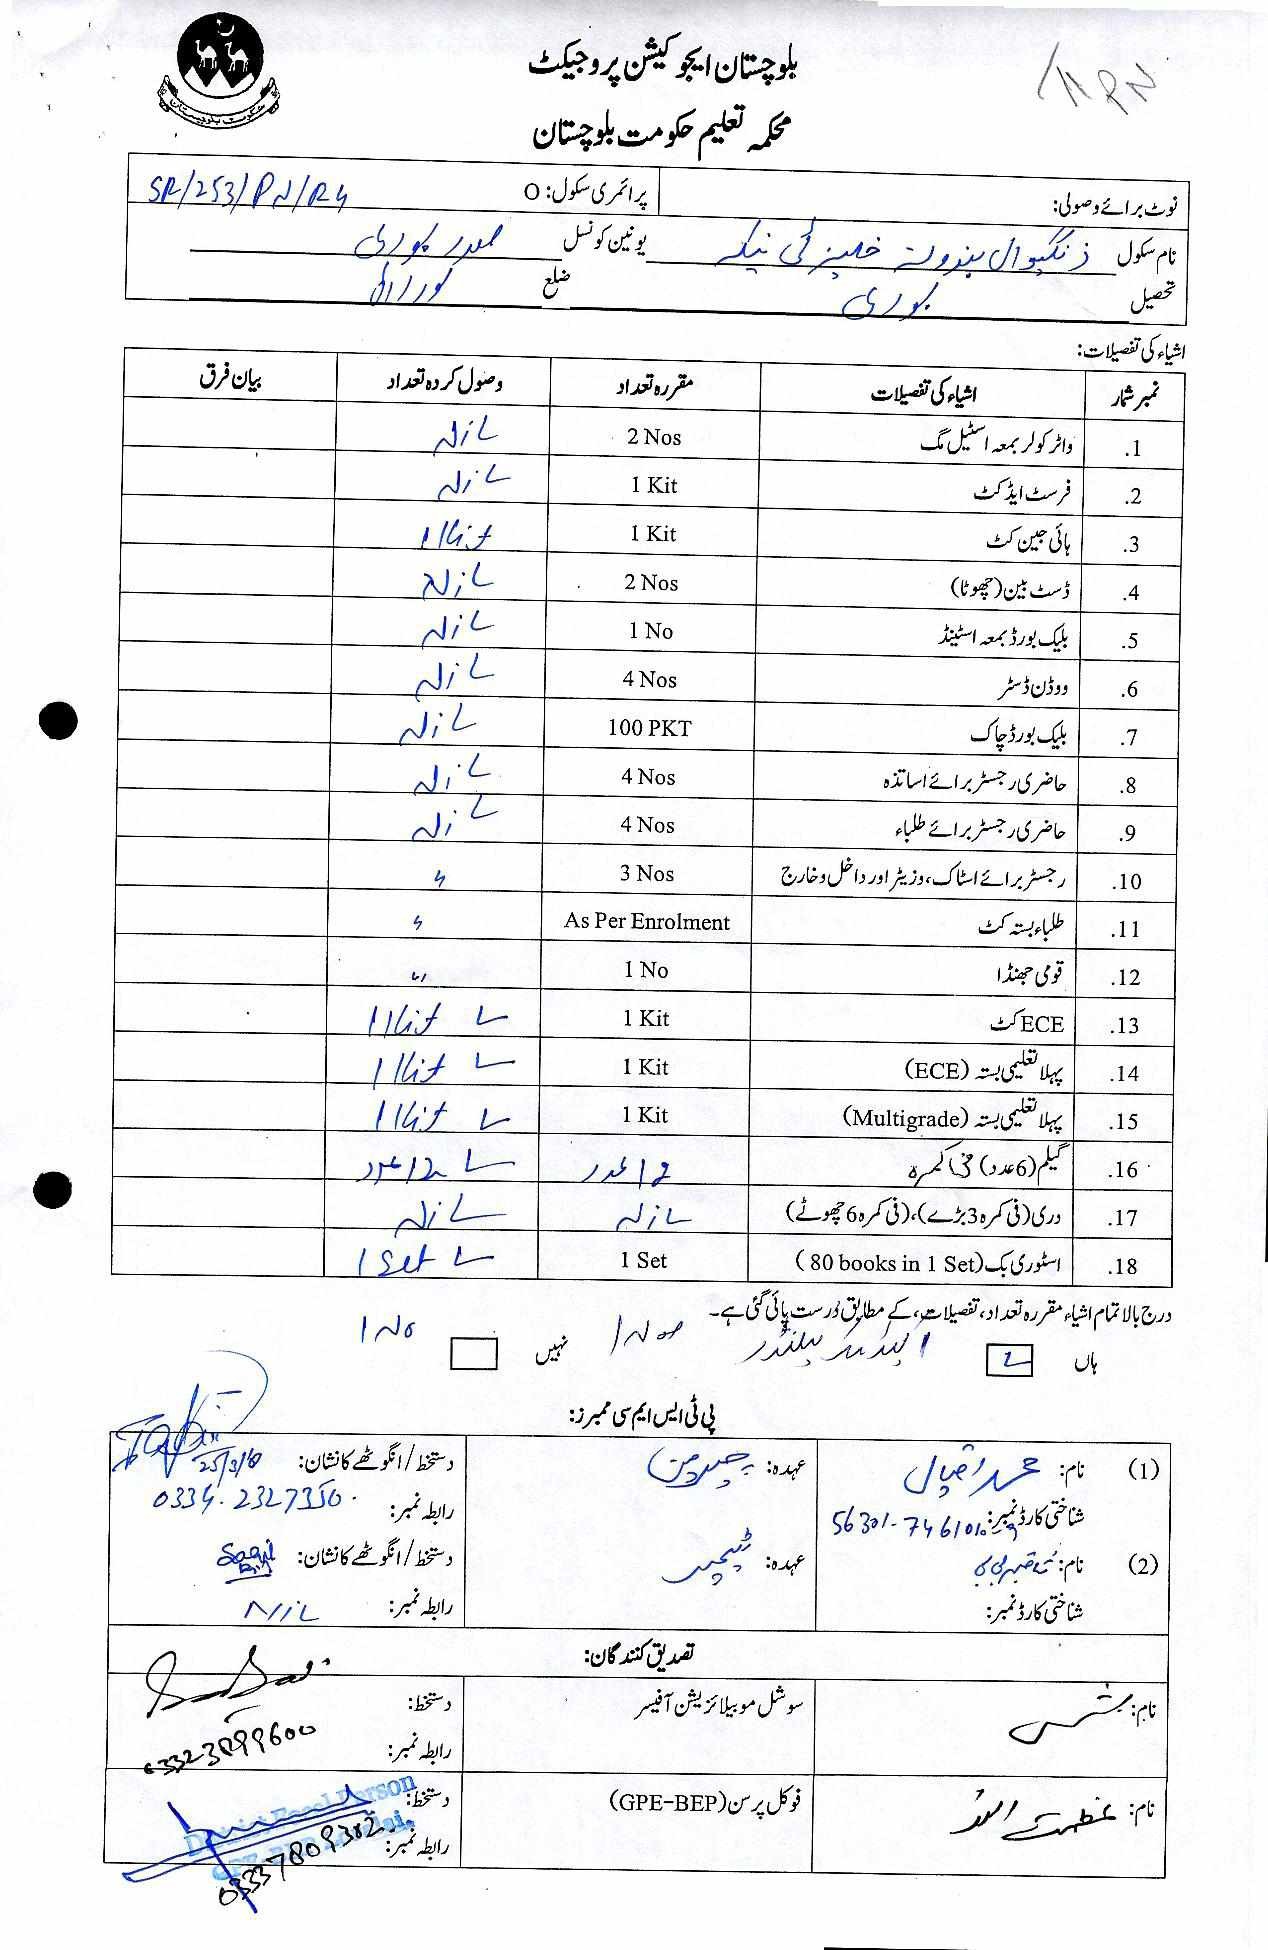 حکومت بلوچستان
بلوچستان ایجوکیشن پروجیکٹ
محکمہ تعلیم حکومت بلوچستان
نوٹ برائے وصولی: پرائمری سکول: O
نام سکول یونین کونسل صدر بوری
تحصیل بوری ضلع لورالائی
اشیاء کی تفصیلات:
نمبر شمار اشیاء کی تفصیلات مقررہ تعداد وصول کردہ تعداد بیان فرق
1. واٹر کولر بمعہ اسٹیل مگ 2 Nos Nil
2. فرسٹ ایڈ کٹ 1 Kit Nil
3. ہائی جین کٹ 1 Kit 1 Kit
4. ڈسٹ بین (چھوٹا) 2 Nos Nil
5. بلیک بورڈ بمعہ اسٹینڈ 1 No Nil
6. ووڈن ڈسٹر 4 Nos Nil
7. بلیک بورڈ چاک 100 PKT Nil
8. حاضری رجسٹر برائے اساتذہ 4 Nos Nil
9. حاضری رجسٹر برائے طلباء 4 Nos Nil
10. رجسٹر برائے اسٹاک، وزیٹر اور داخل و خارج 3 Nos
11. طلباء بستہ کٹ As Per Enrolment
12. قومی جھنڈا 1 No
13. ECE کٹ 1 Kit 1 Kit
14. پہلا تعلیمی بستہ (ECE) 1 Kit 1 Kit
15. پہلا تعلیمی بستہ (Multigrade) 1 Kit 1 Kit
16. گلیم (6 عدد) فی کمرہ 12 عدد 12 عدد
17. دری (فی کمرہ 3 بڑے)، (فی کمرہ 6 چھوٹے) Nil Nil
18. اسٹوری بک (80 books in 1 Set) 1 Set 1 Set
درج بالا تمام اشیاء مقررہ تعداد، تفصیلات، کے مطابق درست پائی گئی ہے۔
ہاں نہیں 1 No
پی ٹی ایس ایم سی ممبرز:
(1) نام: محمد اقبال عہدہ: چیئرمین دستخط/انگوٹھے کا نشان: 25/3/18
شناختی کارڈ نمبر: رابطہ نمبر: 0334-2327350
(2) نام: عہدہ: ٹیچر دستخط/انگوٹھے کا نشان:
شناختی کارڈ نمبر: رابطہ نمبر: Nil
تصدیق کنندگان:
نام: شمس سوشل موبیلائزیشن آفیسر دستخط:
رابطہ نمبر: 03323899600
نام: عظمت اللہ فوکل پرسن (GPE-BEP) دستخط:
رابطہ نمبر: 03337809302
District Focal Person